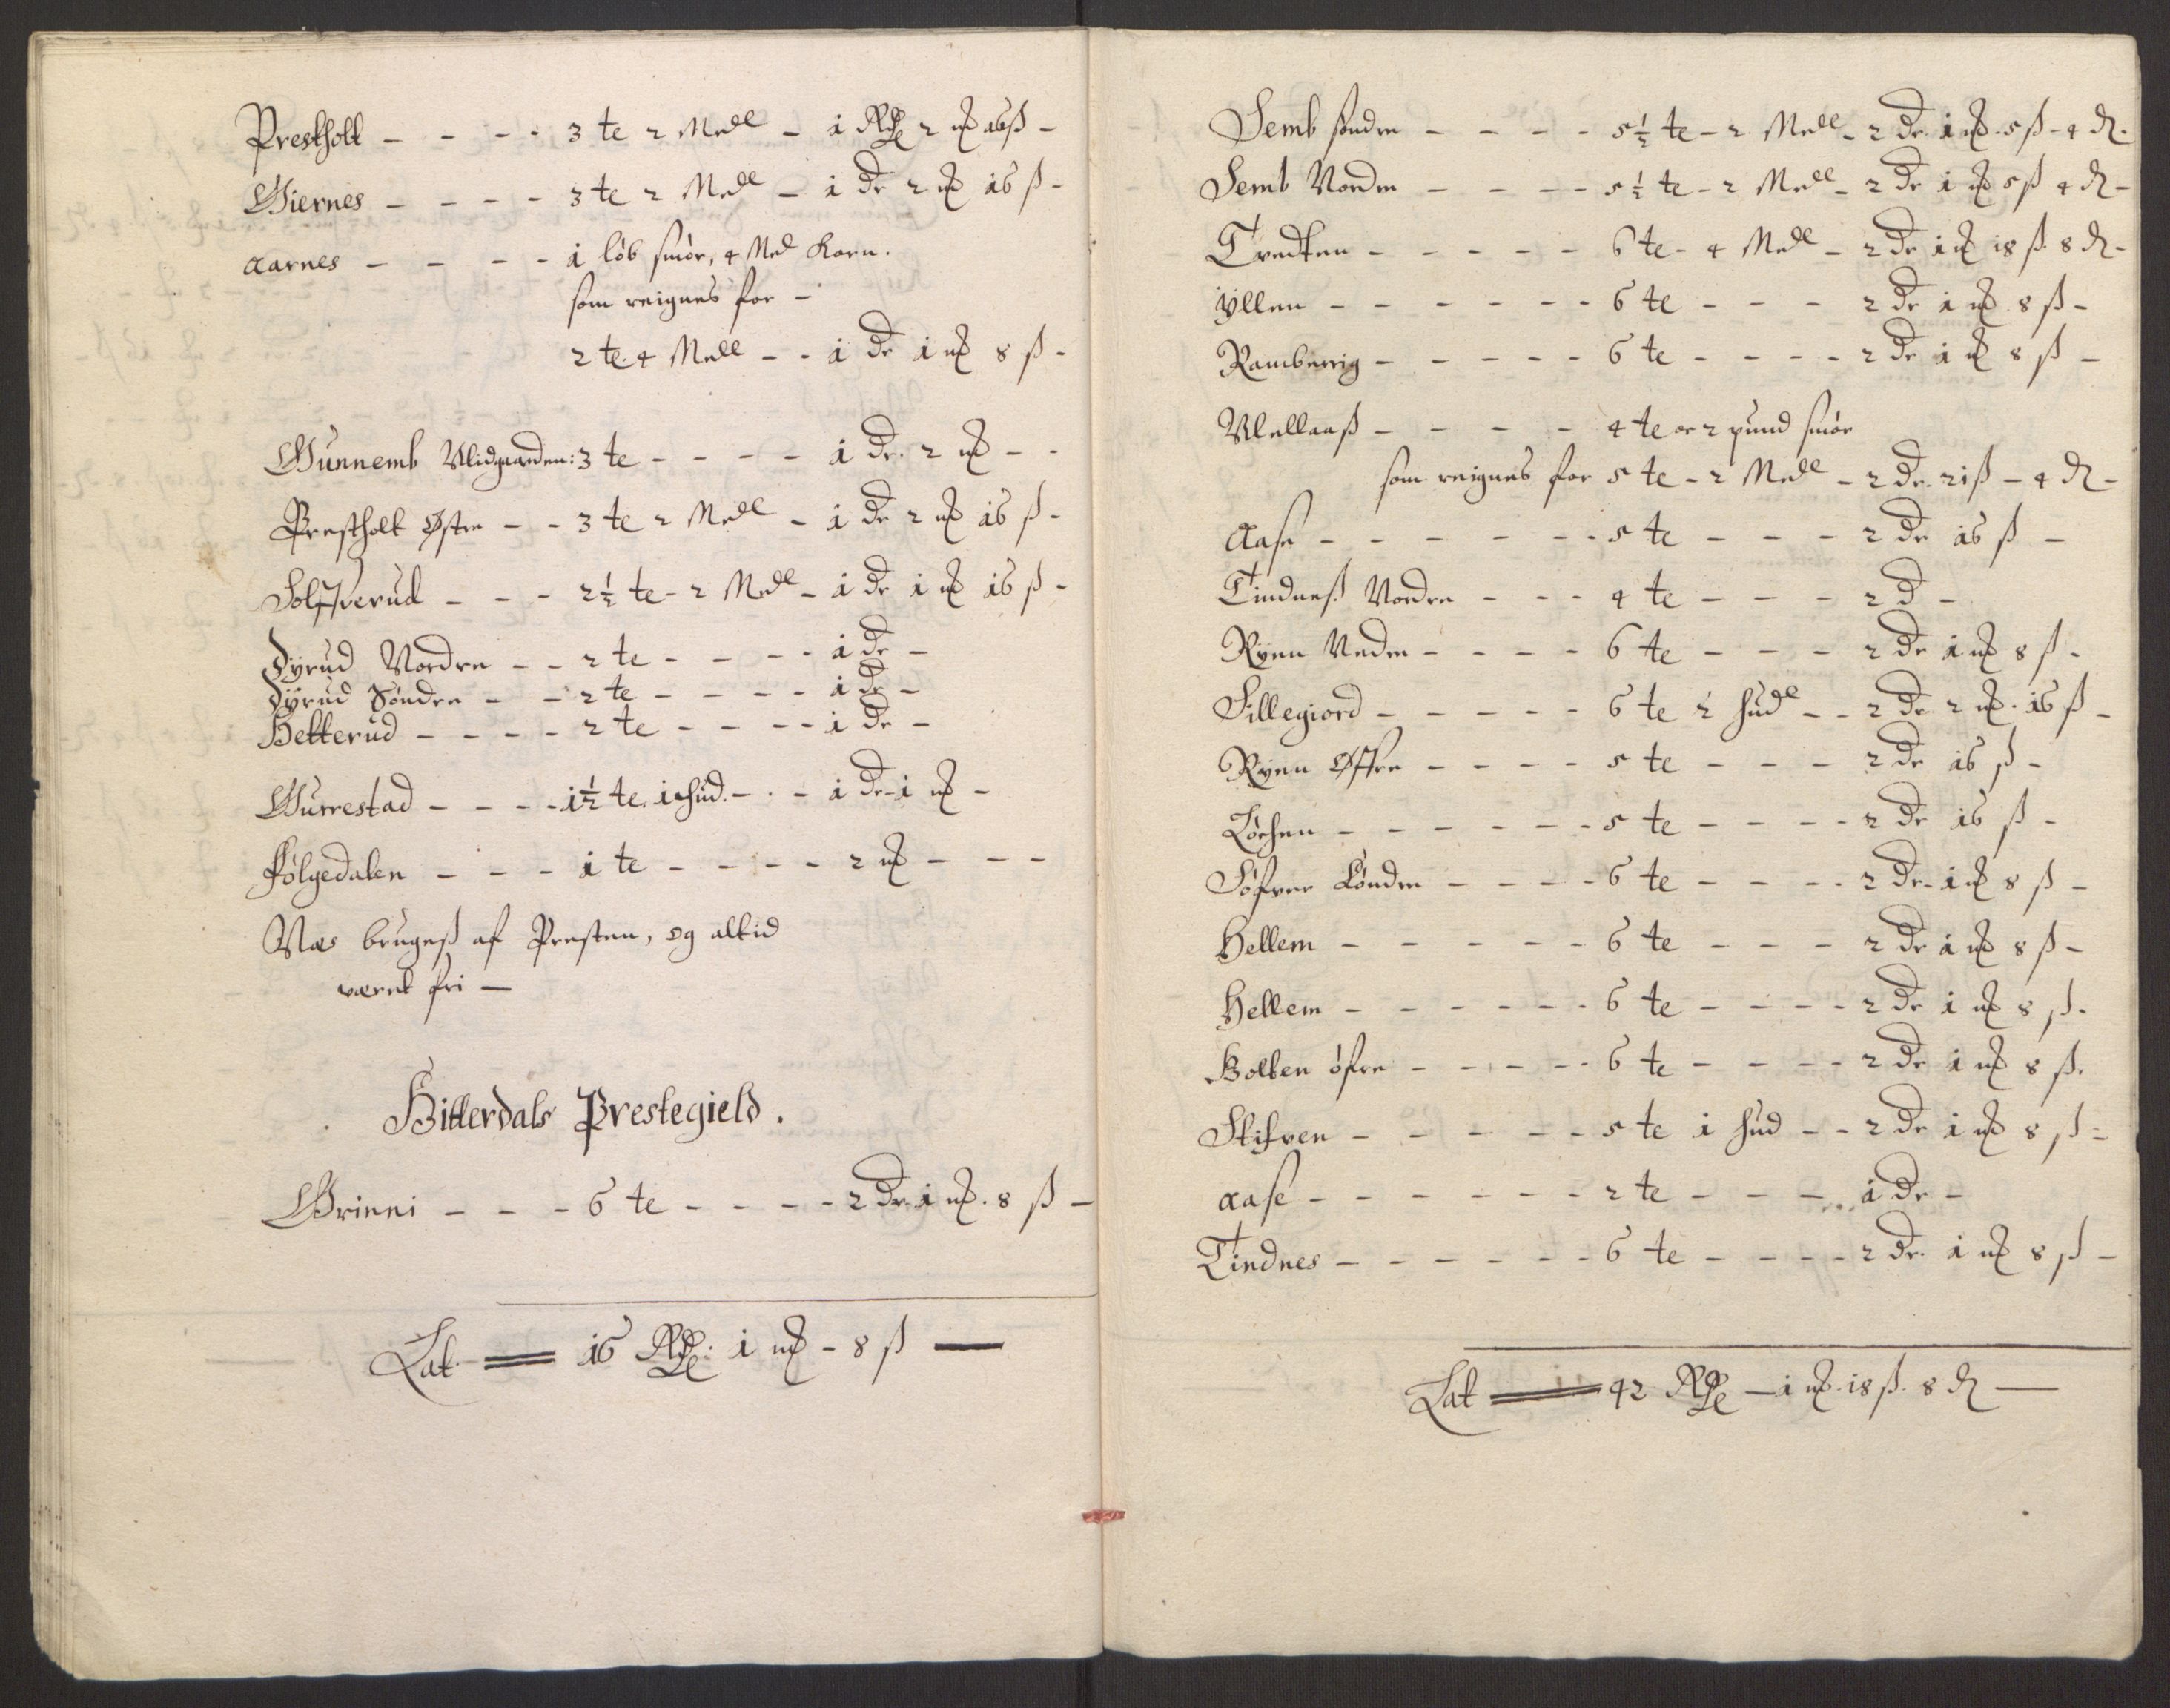 Prestholt - - - - 3 te 2 Mell - 1 Rdr 2 mk 16 ß -
Giernes - - - - 3 te 2 Mell - 1 dr 2 mk 16 ß -
Aarnes - - - - 1 løb smør, 4 Mel Korn.
som reignes for -
2 te 4 Mell - - 1 dr 1 mk 8 ß -
Gunnemb Midgaarden: 3 te - - - - 1 dr. 2 mk - -
Prestholt Østre - - 3 te 2 Mell - 1 dr 2 mk 16 ß -
Solfverud - - - 2½ te - 2 Mell - 1 dr 1 mk 16 ß -
Dyrud Nordre - - 2 te - - - - 1 dr -
Dyrud Søndre - - 2 te - - - - 1 dr -
Hetterud - - - - 2 te - - - - 1 dr -
Gurrestad - - - - 1½ te. 1 hud. - - - 1 dr - 1 mk -
Følgedalen - - - 1 te - - - - 2 mk - - -
Næs brugeß af Presten, og altid
værret fri -
Hitterdals Prestegield.
Grinni - - - 6 te - - - - 2 dr. 1 mk. 8 ß -
Lat = 16 Rdr: 1 mk - 8 ß -
Semb søndre - - - - 5½ te - 2 Mell - 2 dr. 1 mk. 5 ß - 4 d.
Semb Nordre - - - - 5½ te - 2 Mell - 2 dr 1 mk 5 ß 4 d -
Tvedten - - - - - 6 te - 4 Mell - 2 dr 1 mk 18 ß 8 d -
Yllen - - - - - - 6 te - - - 2 dr 1 mk 8 ß -
Ramberrig - - - - - 6 te - - - - 2 dr 1 mk 8 ß -
Mellaaß - - - - 4 te oc 2 pund smør
som reignes for 5 te - 2 Mell - 2 dr. 21 ß - 4 d -
Aase - - - - - - 5 te - - - 2 dr 16 ß -
Tindneß Nordre - - - 4 te - - - 2 d -
Ryen Nedre - - - - 6 te - - - 2 dr 1 mk 8 ß -
Sillegiord - - - - - 6 te 2 hude - - 2 dr 2 mk. 16 ß -
Ryen Østre - - - - 5 te - - - 2 dr 16 ß -
Løchen - - - - - - 5 te - - - - 2 dr 16 ß -
Søfver Søndre - - - - 6 te - - - - 2 dr - 1 mk 8 ß -
Hellem - - - - - 6 te - - - 2 dr 1 mk 8 ß -
Hellem - - - - - - 6 te - - - - 2 dr 1 mk 8 ß -
Bolten øfre - - - - - 6 te - - - - 2 dr 1 mk 8 ß.
Stifven - - - - - 5 te 1 hud - - 2 dr 1 mk 8 ß -
Aase - - - - - - 2 te - - - 1 dr -
Tindnes - - - - - - 6 te - - - - 2 dr. 1 mk 8 ß -
Lat = 42 Rdr - 1 mk. 18 ß. 8 d -